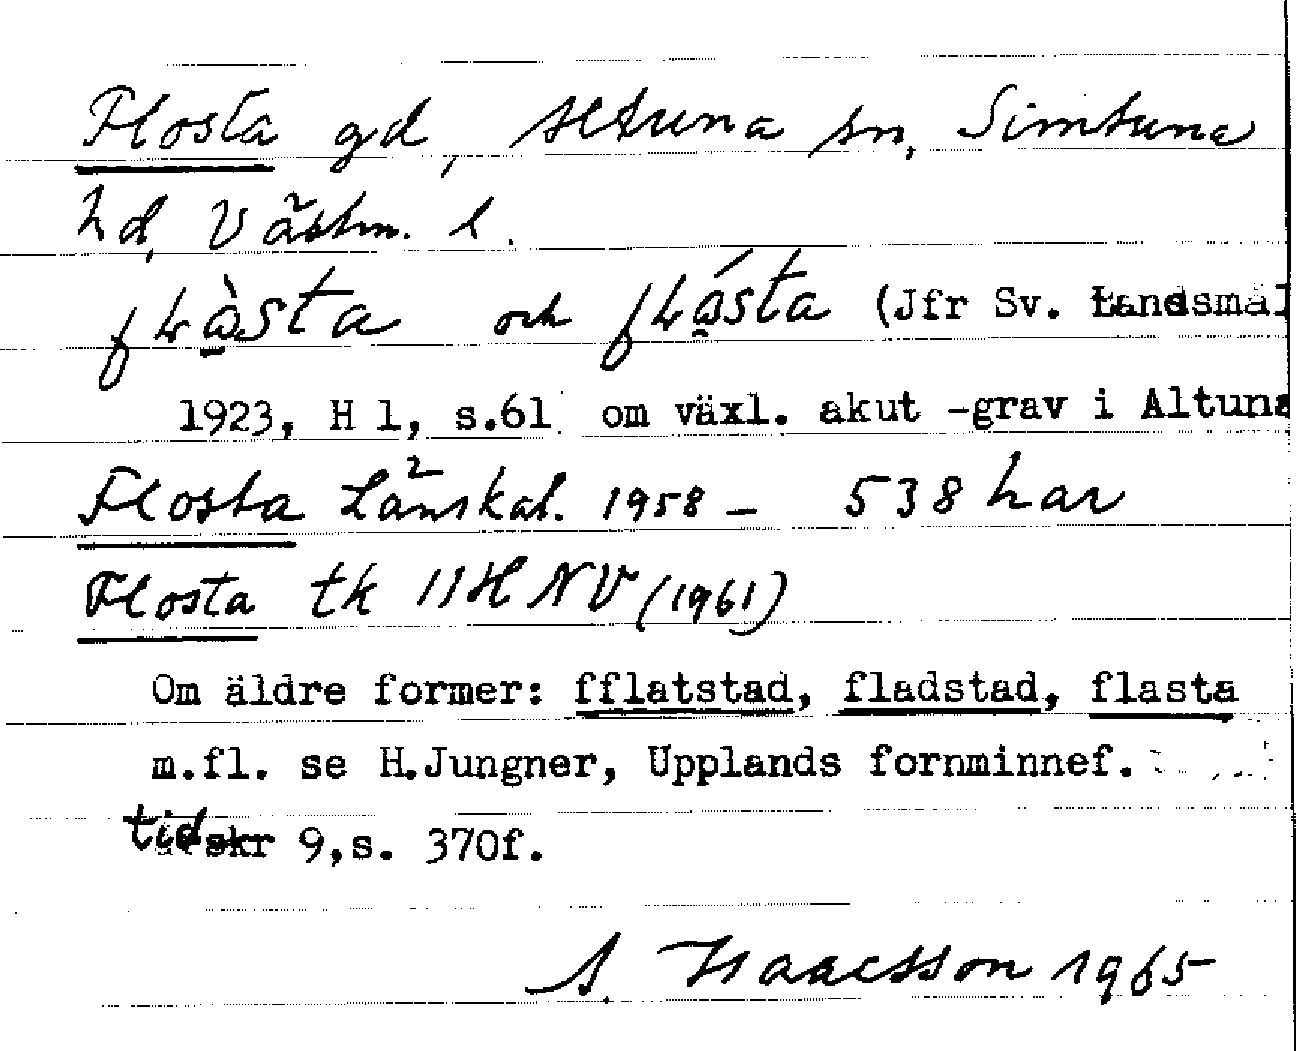 Flosta gd, Altuna sn, Simtuna
hd, Västm. l.
och (Jfr Sv. Landsmål
1923, H 1, s.61 om växl. akut -grav i Altuna
Flosta Länskat. 1958 - 538 har
Flosta tk 11H NV (1961)
Om äldre former: fflatstad, fladstad, flasta
m.fl. se H.Jungner, Upplands fornminnef.
tidskr 9,s. 370f.
S. Isaacsson 1965